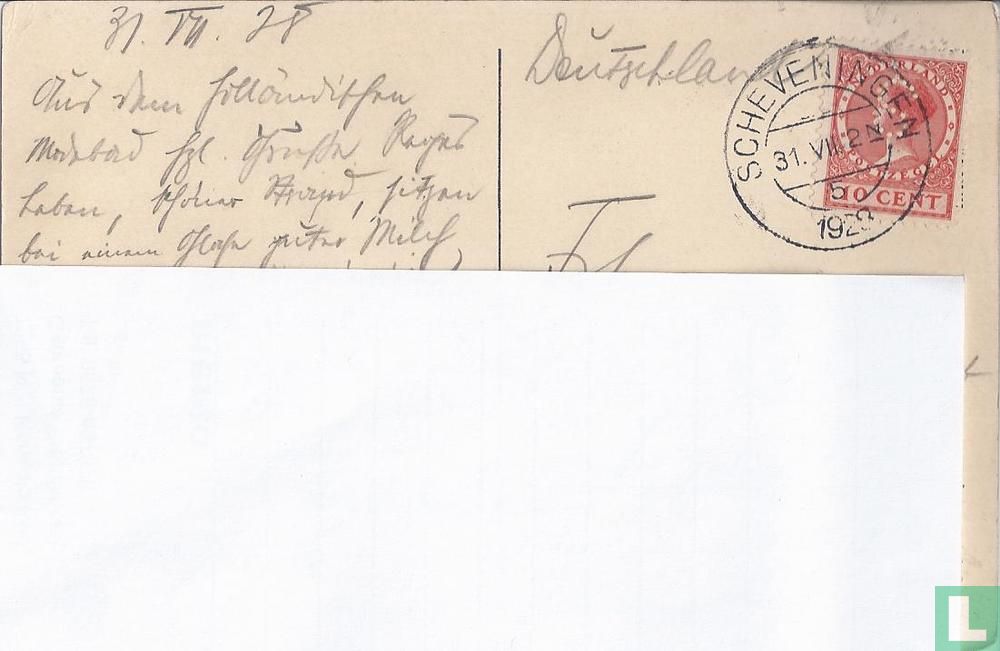 31. VII. 28
Aus dem holländischen
Modebad hzl. Grüße. Reges
Leben, schöner Strand, sitzen
bei einem Glase guter Milch
Deutschland
SCHEVENINGEN
31.VII. 2N
5
1928
NEDERLAND
10 CENT
L